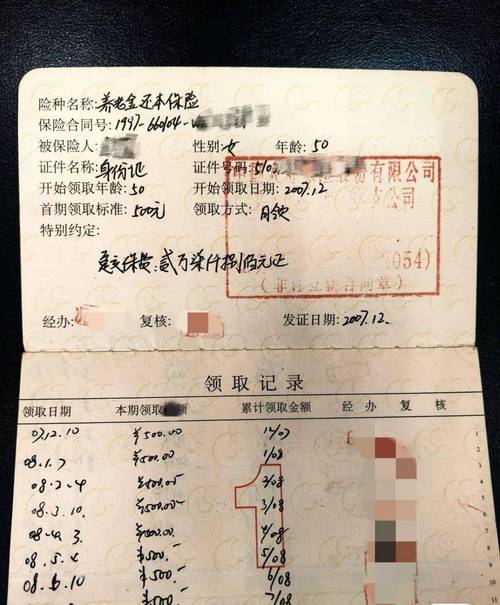 险种名称: 养老金还本保险
保险合同号: 1997-660104-
被保险人: 性别: 女 年龄: 50
证件名称: 身份证 证件号码: 5102
开始领取年龄: 50 开始领取日期: 2007.12
首期领取标准: 500元 领取方式: 月领
特别约定:
保费: 贰万柒仟捌佰元正
份有限公司
054)
经办: 复核: 发证日期: 2007.12.
领取记录
领取日期 本期领取 额 累计领取金额 经办 复核
07.12.10 ¥500.00 12/07 1
08.1.7 ¥500.00 1/08 2
08.2.4 ¥500.00 2/08 3
08.3.10 ¥500.00 3/08 4
08.4.3 ¥500.00 4/08 5
08.5.4 ¥500.- 5/08
08.6.10 ¥500.- 6/08
¥500.- 7/08